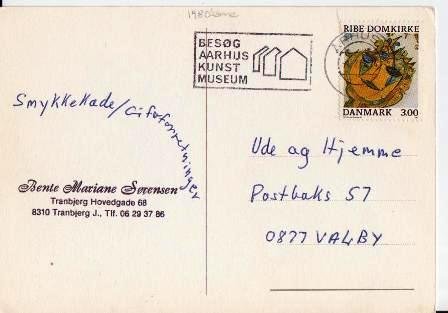 BESØG
AARHUS
KUNST
MUSEUM
AARHUS
RIBE DOMKIRKE
DANMARK 3.00
Smykkekæde/
Bente Mariane Sørensen
Tranbjerg Hovedgade 68
8310 Tranbjerg J., Tlf. 06 29 37 86
Ude og Hjemme
Postboks 57
0877 VALBY